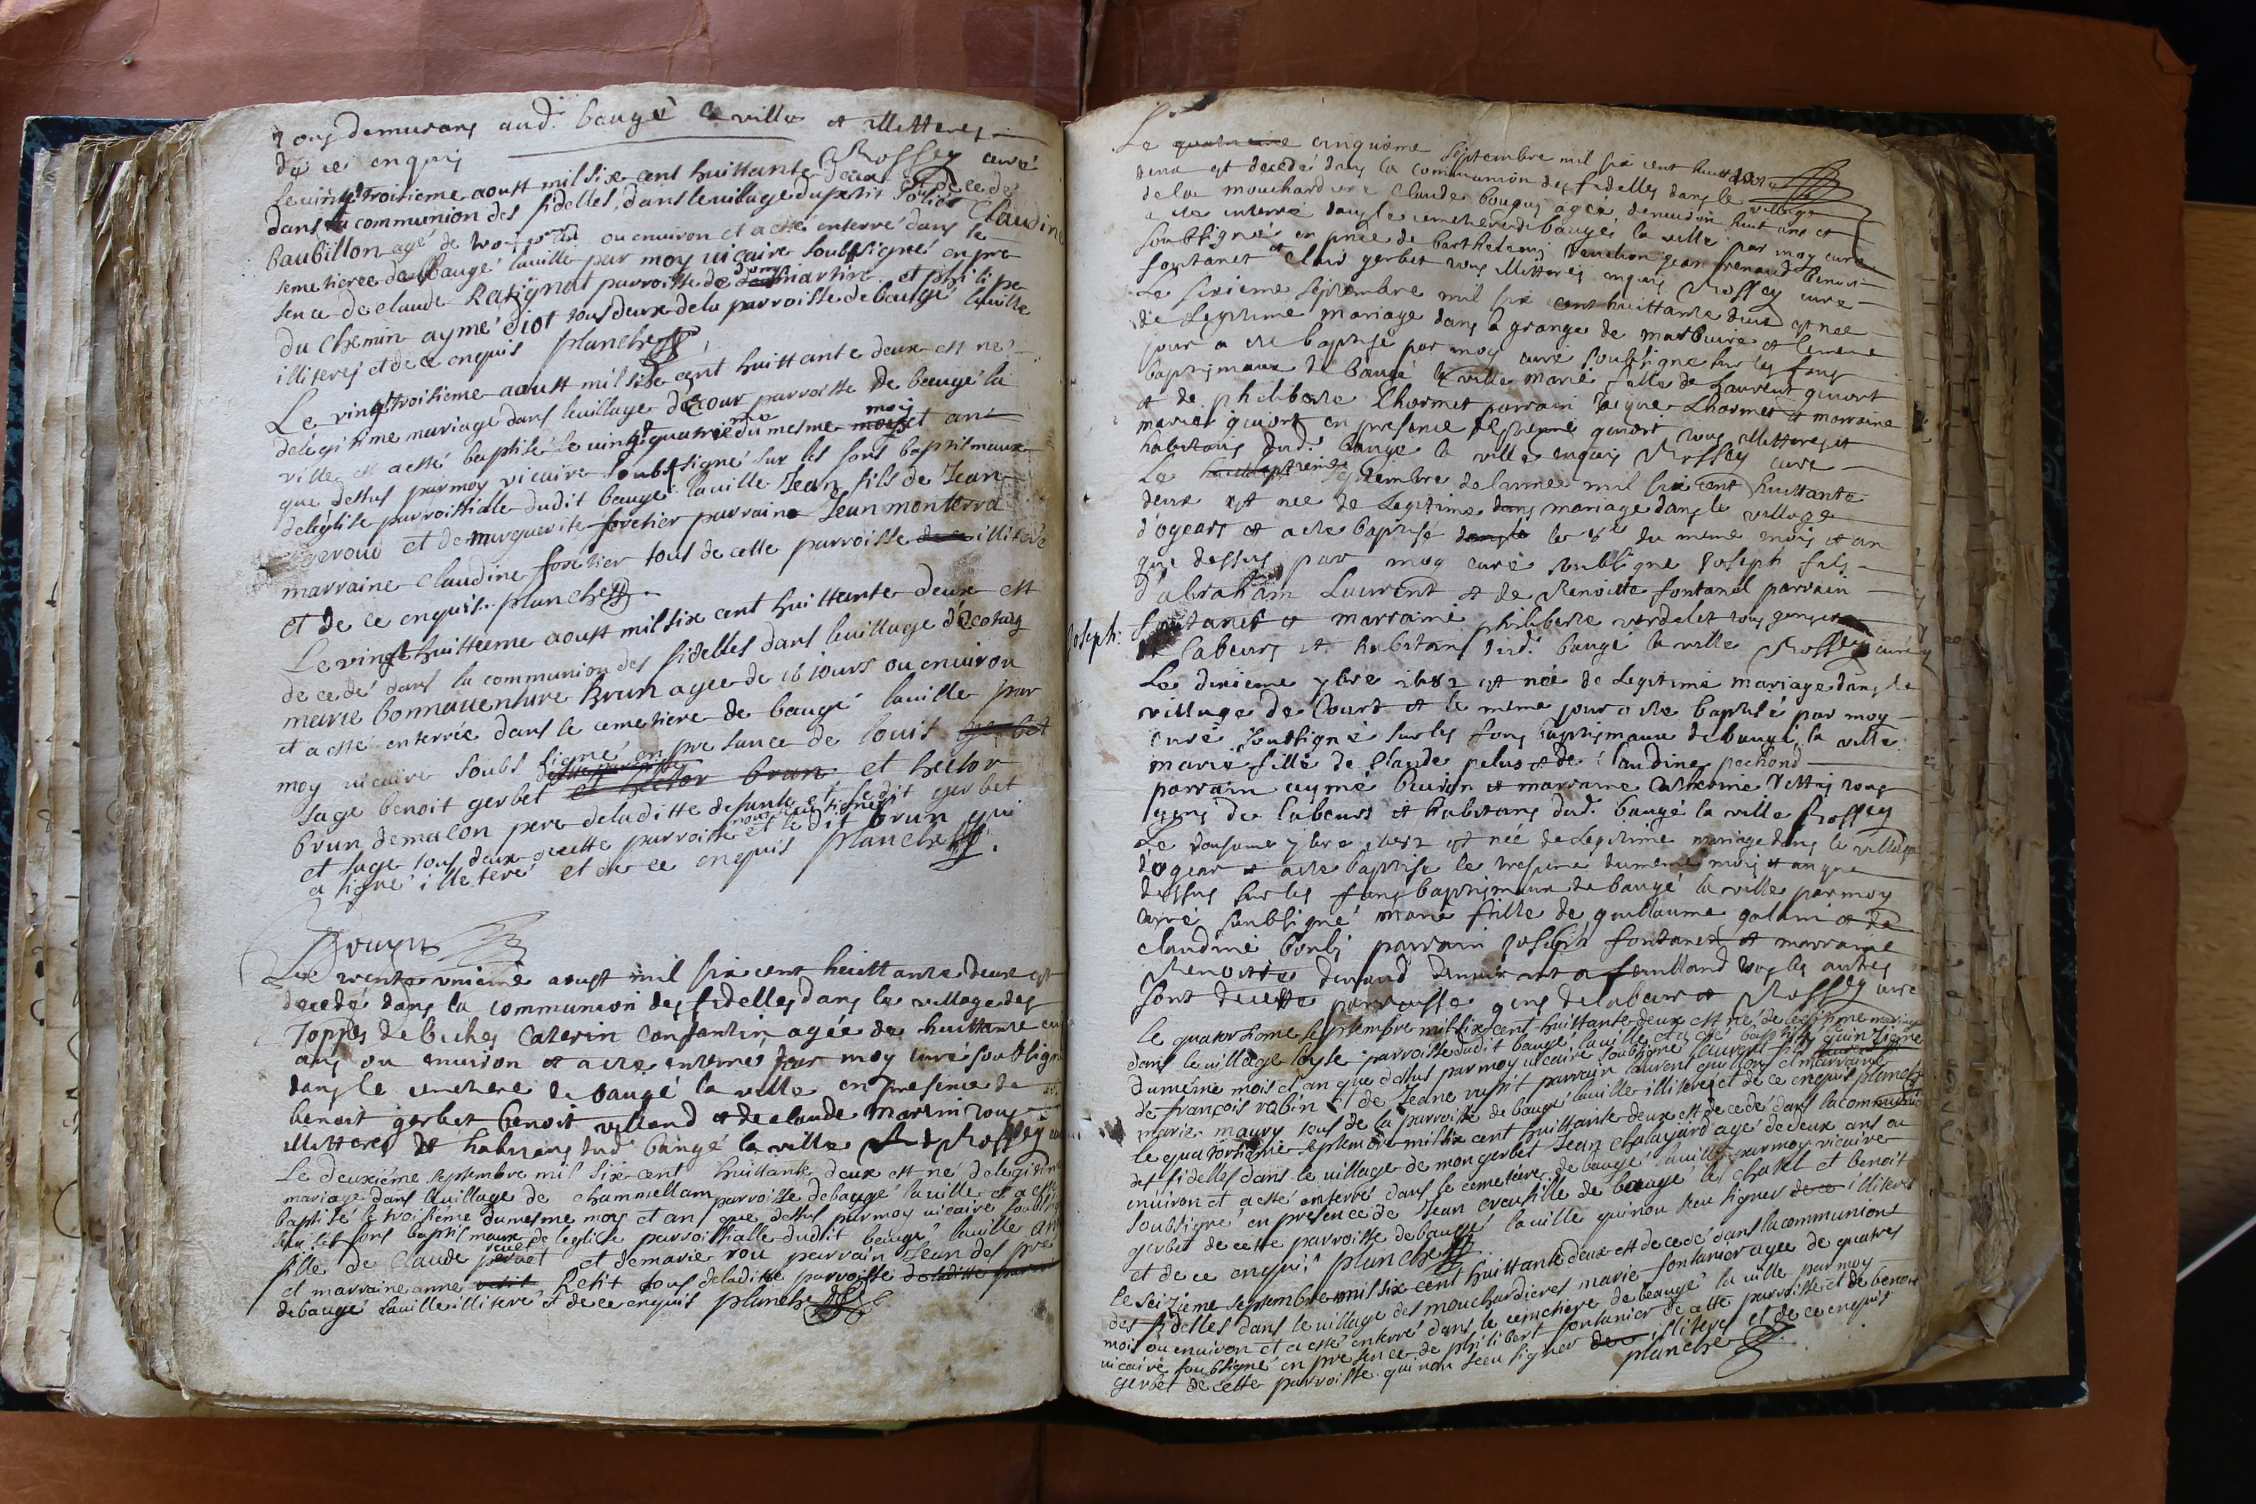 tous demurans aud. baugé la ville et illitteres
de ce enquis Rossey curé
Le vingt troisieme aoust mil six cent huittante deux est decedé
dans la communion des fidelles, dans le village du petit Claudine
baubillon agé de trois ou environ et a esté enterré dans le
semetiere de baugé la ville par moy vicaire soubsigné en pre
sence de claude Ratignat parroisse de dom martin et philipe
du chemin aymé diot tous deux de la parroisse de baugé la ville
illiteres et de ce enquis planche
Le vingt troisieme aoust mil six cent huittante deux est né
de legitime mariage dans le village de cour parroisse de baugé la
ville et a esté baptisé le vingt quatrieme du mesme mois et an
que dessus par moy vicaire soubsigné sur les fons baptismaux
de leglise parroissialle dudit baugé la ville Jean fils de Jean
et de marguerite foretier parrain Jean monterra
marraine claudine foretier tous de cette parroisse illiteré
et de ce enquis planche
Le vingt huittieme aoust mil six cent huittante deux est
de ce dé dans la communion des fidelles dans le village
marie bonnaventure Brun agee de 16 jours ou environ
et a esté enterrée dans le cemetiere de baugé la ville par
moy vicaire soubs signé en presance de louis gerbet
sage benoit gerbet et hector brun et hector
brun de macon pere de laditte defunte et ledit gerbet
et sage tous deux de cette parroisse et le dit brun qui
a signé illeteré et de ce enquis planche
Brun
Le trente unieme aoust mil six cent huittante deux est
decedé dans la communion des fidelles dans le village des
Toppes de biches Caterin Constantin agée de huittante
ans ou environ et a esté enterré par moy curé soubsigné
dans le cemetiere de baugé la ville en presence de
benoit gerbet benoit villand et de claude martin tous
illitteres et habitans dud. baugé la ville Rossey
Le deuxiéme septembre mil six cent huittante deux est né de legitime
mariage dans le village de chammellam parroisse de baugé la ville et a esté
baptisé le troisiéme du mesme moy et an que dessus par moy vicaire soubsigné
sur les fons baptismaux de leglise parroissialle dudit baugé la ville
fille de Claude et de marie rou parrain Jean des pré
et marraine anne Petit tous de laditte parroisse de laditte
de baugé la ville illiteré et de ce enquis planche
Le quatrieme cinquieme septembre mil six cent huittante
deux est decedé dans la communion des fidelles dans le village
de la mouchardiere Claude agée d'environ huit ans et
a esté enterré dans le cemetiere de baugé la ville par moy curé
soubsigné en presence de barthelemy Benoit
fontanet et gerbet tous illitteres enquis Rossey curé
Le sixieme septembre mil six cent huittante deux est née
de legitime mariage dans la grange de et le meme
jour a esté baptisé par moy curé soubsigné sur les fons
baptismaux de baugé la ville marie fille de Laurent givort
et de philiberte Lhormet parrain Lhormet et marraine
marie givort en presence de givort tous illitteres et
habitans dud. baugé la ville enquis Rossey curé
Le septembre de lannée mil six cent huittante
deux est née de legitime mariage dans le village
d'ogears et a esté baptisé le 8e du meme mois et an
que dessus par moy curé soubsigné Joseph fils
d'abraham Laurent et de Benoitte fontanel parrain
Joseph fontanet et marraine philiberte verdelet tous gens
de labeurs et habitans dud. baugé la ville Rossey curé
Le dixieme 7bre 1682 est née de legitime mariage dans le
village de Court et le meme jour a esté baptisé par moy
curé soubsigné sur les fons baptismaux de baugé la ville
marie fille de Claude pelus et de Claudine pochond
parrain aymé buiron et marraine Catherine tous
gens de labeurs et habitans dud. baugé la ville Rossey
Le dousieme 7bre 1682 est née de legitime mariage dans le village
d'ogear et a esté baptisé le tresieme du meme mois et an que
dessus sur les fons baptismaux de baugé la ville par moy
curé soubsigné marie fille de guillaume galani et de
claudine parrain Joseph fontanet et marraine
Benoitte durand a feuilland tous les autres
sont de cette parroisse gens de labeur et Rossey curé
Le quatorsieme septembre mil six cent huittante deux est né de legitime mariage
dans le village parroisse dudit baugé la ville et a esté baptisé le quinzieme
du méme mois et an que dessus par moy vicaire soubsigné laurent fils
de françois robin et de Jeane parrain laurent et marraine
marie maury tous de la parroisse de baugé la ville illiteres et de ce enquis planche
Le quatorsieme septembre mil six cent huittante deux est de ce dé dans la communion
des fidelles dans le village de mongerbet Jean chalayard agé de deux ans ou
environ et a esté enterré dans le cemetiere de baugé la ville par moy vicaire
soubsigné en presence de Jean de baugé le chatel et benoit
gerbet de cette parroisse de baugé la ville qui non seeu signer de ce illiteres
et de ce enquis planche
Le seizieme septembre mil six cent huittante deux est de ce dé dans la communions
des fidelles dans le village des mouchardieres marie fontanier agee de quatres
mois ou environ et a esté enterré dans le cemetiere de baugé la ville par moy
vicaire soubsigné en presence de philibert fontanier de cette parroisse et de benoit
gerbet de cette parroisse qui non seeu signer de ce illiteres et de ce enquis
planche